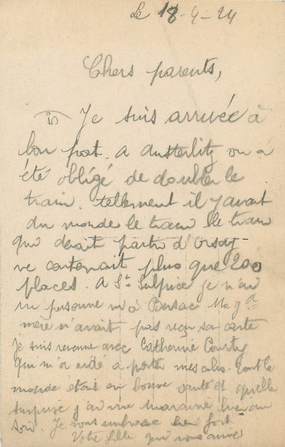 Le 18-4-24
Chers parents,
Je suis arrivée à
bon port. a Austerlitz on a
été obligé de doubler le
train. tellement il y avait
du monde le train le train
qui devait partir d'Orsay
ne contenait plus que 200
places. A St Sulpice je n'ai
vu personne ni à Bersac Ma gd
mère n'avait pas reçu sa carte
Je suis revenue avec Catherine
qui m'a aidé a porter mes colis. Tout le
monde etait en bonne santé et quelle
surprise j'ai ma marraine
soir. Je vous embrasse bien fort
Votre fille qui vous aime